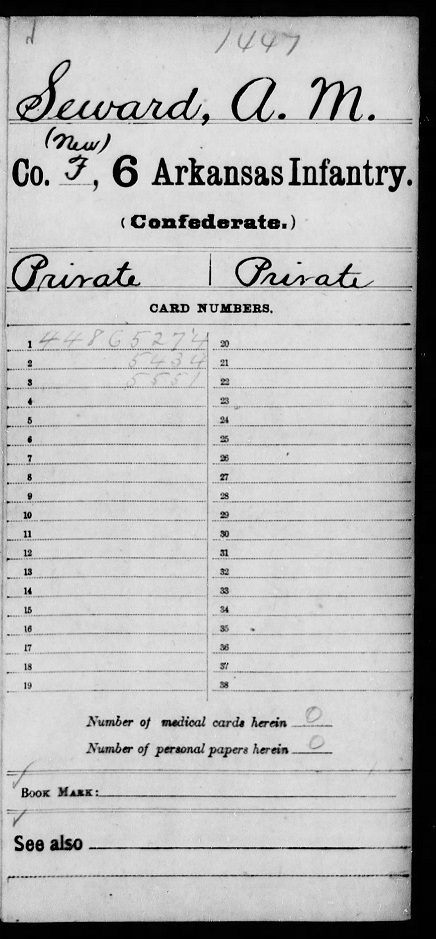 1447
Seward, A. M.
(New)
Co. F, 6 Arkansas Infantry.
(Confederate.)
Private | Private
CARD NUMBERS.
1 44865274 20
2 5434 21
3 5551 22
4 23
5 24
6 25
7 26
8 27
9 28
10 29
11 30
12 31
13 32
14 33
15 34
16 35
17 36
18 37
19 38
Number of medical cards herein 0
Number of personal papers herein 0
BOOK MARK:
See also